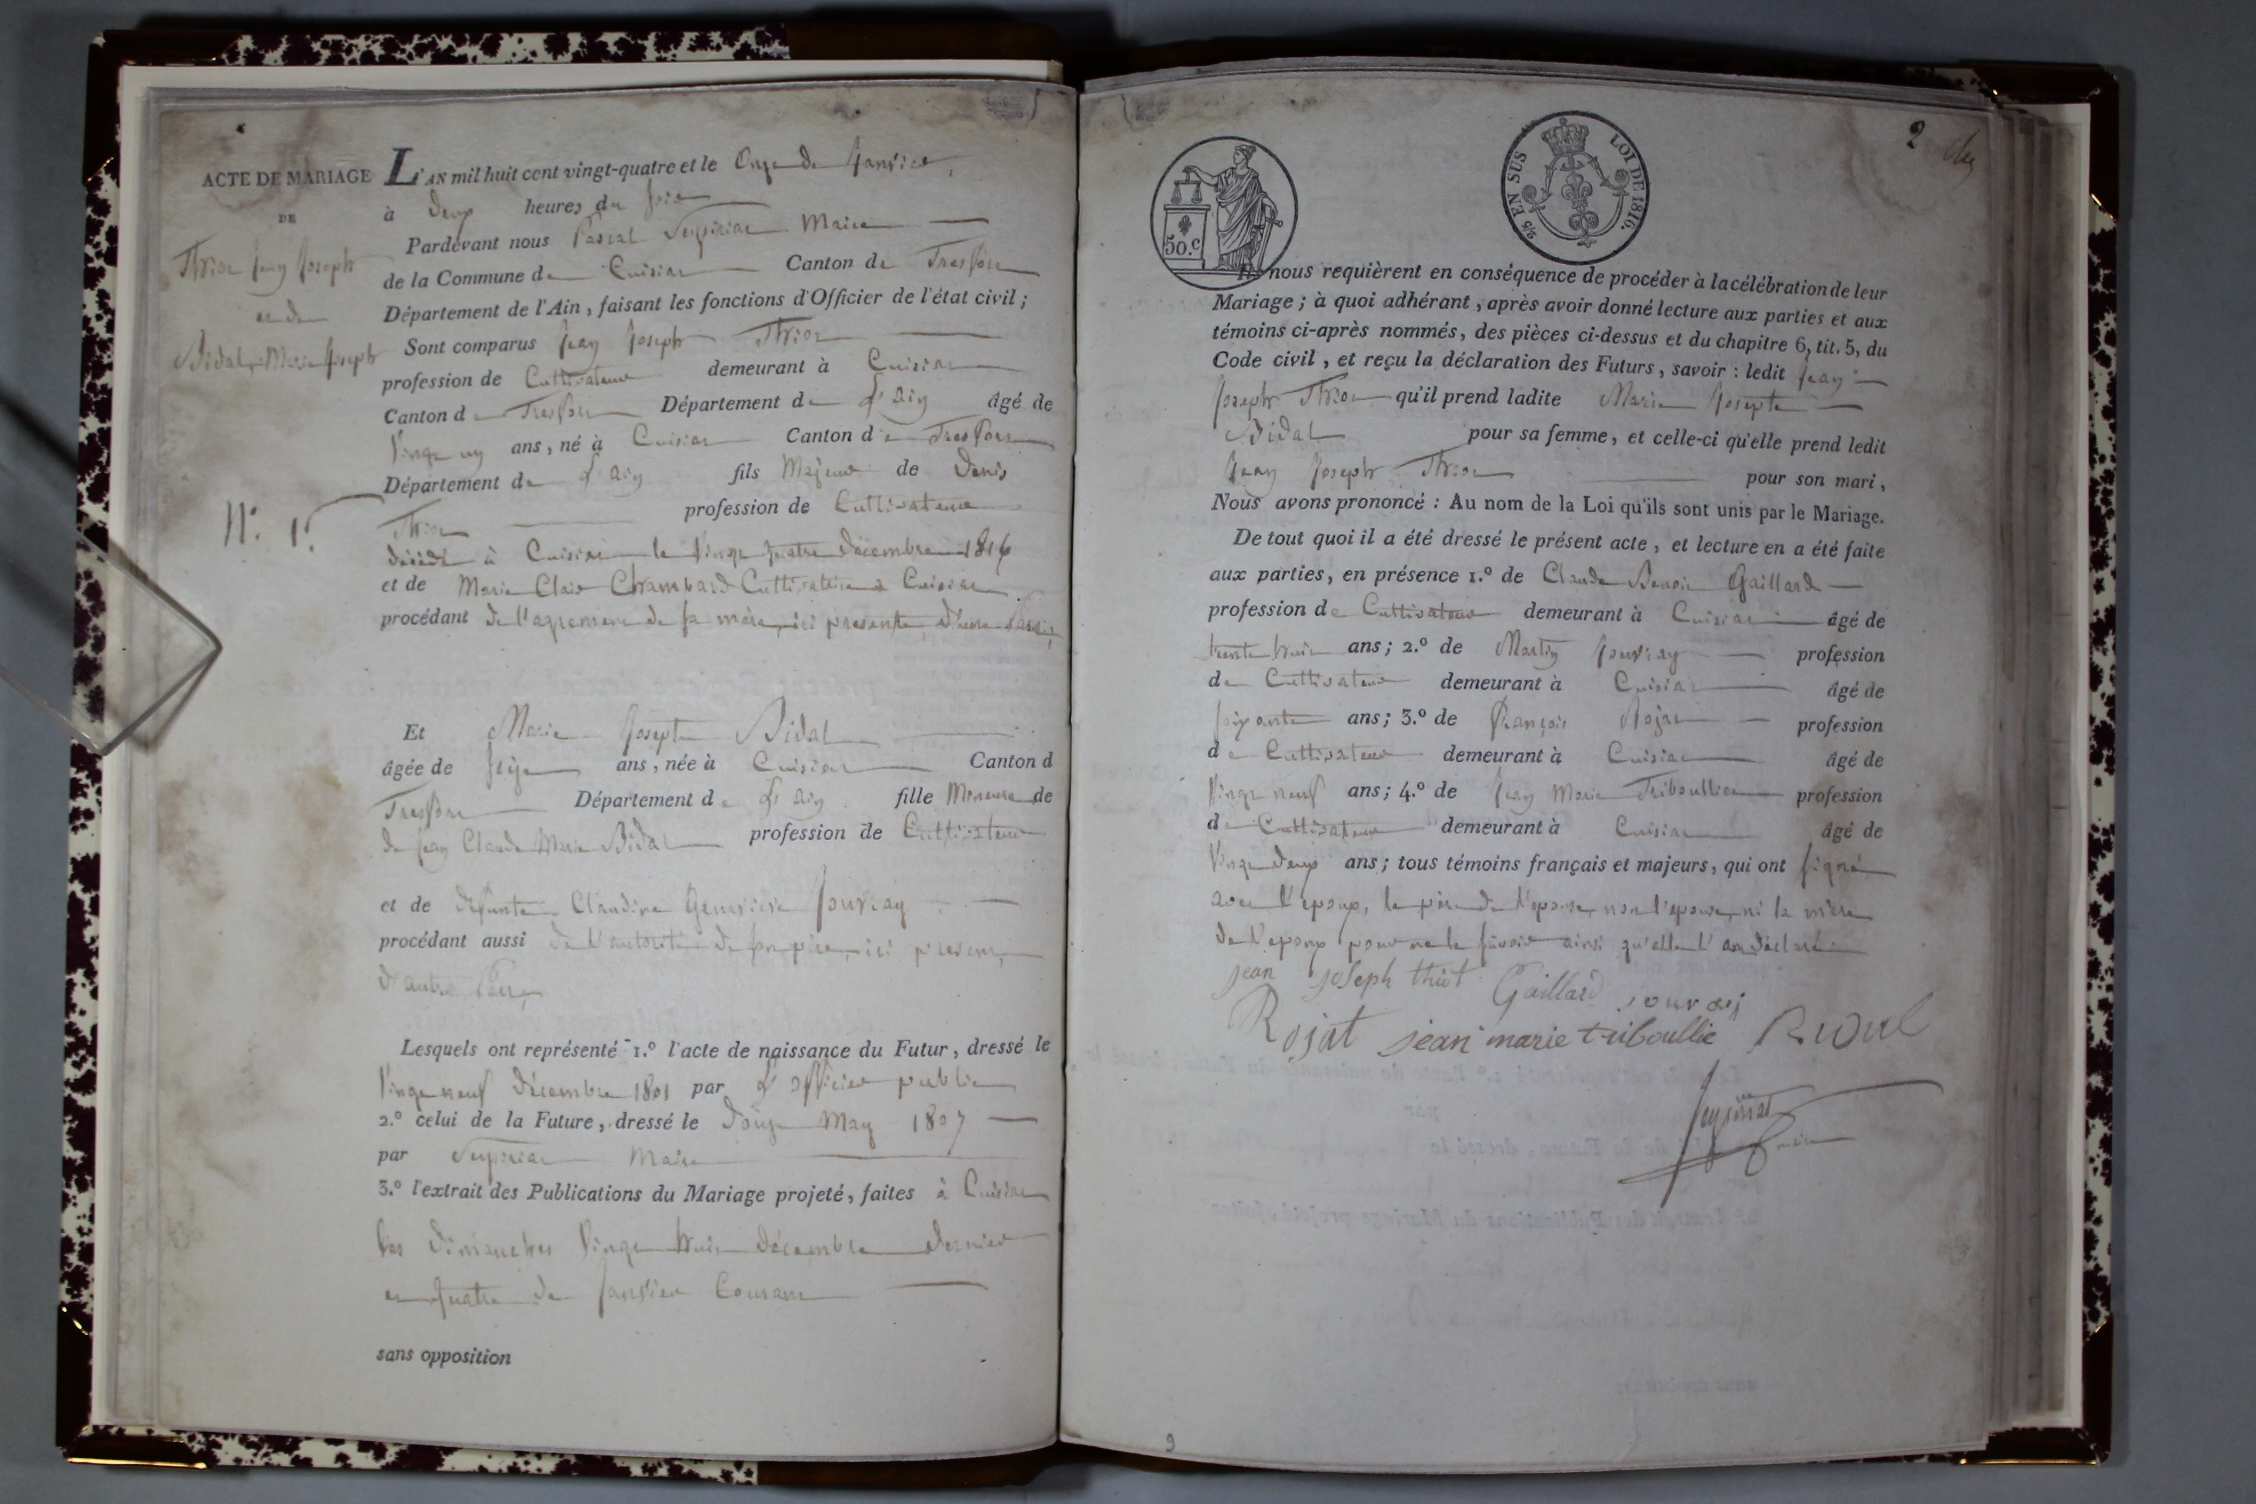 ACTE DE MARIAGE
DE
Thiot Jean Joseph
et de
Bidal Marie Joseph
N.º 1.er
L'AN mil huit cent vingt-quatre et le Onze de Janvier,
à Deux heures du soir
Pardevant nous Pascal Seypiriat Maire
de la Commune de Cuisiat Canton de Treffort
Département de l'Ain, faisant les fonctions d'Officier de l'état civil;
Sont comparus Jean Joseph Thiot
profession de Cultivateur demeurant à Cuisiat
Canton de Treffort Département de L'ain âgé de
Vingt un ans, né à Cuisiat Canton de Treffort
Département de L'ain fils Majeur de Denis
Thiot profession de Cultivateur
décédé à Cuisiat le Vingt quatre décembre
et de Marie Clair Chambard Cultivatrice à Cuisiat
procédant de l'agrement de sa mère, ici presente, d'une part,
Et Marie Josepte Bidal
âgée de seize ans, née à Cuisiat Canton d
Treffort Département de L'ain fille Mineure de
de Jean Claude Marie Bidal profession de Cultivateur
et de defunte Claudine Genevieve Jouvray
procédant aussi de l'autorité de son père, ici present,
d'autre Part,
Lesquels ont représenté 1.º l'acte de naissance du Futur, dressé le
Vingt neuf décembre 1801 par L'officier public
2.º celui de la Future, dressé le Douze May 1807
par Seypiriat Maire
3.º l'extrait des Publications du Mariage projeté, faites à Cuisiat
les dimanches Vingt huit décembre dernier
et quatre de Janvier Courant
sans opposition
2
50.c
2/5 EN SUS LOI DE 1816.
Ils nous requièrent en conséquence de procéder à la célébration de leur
Mariage; à quoi adhérant, après avoir donné lecture aux parties et aux
témoins ci-après nommés, des pièces ci-dessus et du chapitre 6, tit. 5, du
Code civil, et reçu la déclaration des Futurs, savoir: ledit Jean
Joseph Thiot qu'il prend ladite Marie Josepte
Bidal pour sa femme, et celle-ci qu'elle prend ledit
Jean Joseph Thiot pour son mari,
Nous avons prononcé: Au nom de la Loi qu'ils sont unis par le Mariage.
De tout quoi il a été dressé le présent acte, et lecture en a été faite
aux parties, en présence 1.º de Claude Benoit Gaillard
profession de Cultivateur demeurant à Cuisiat âgé de
trente huit ans; 2.º de Martin Jouvray profession
de Cultivateur demeurant à Cuisiat âgé de
soixante ans; 3.º de François Rojat profession
de Cultivateur demeurant à Cuisiat âgé de
Vingt neuf ans; 4.º de Jean Marie Triboullier profession
de Cultivateur demeurant à Cuisiat âgé de
Vingt deux ans; tous témoins français et majeurs, qui ont signé
avec l'epoux, le père de l'epouse, non l'epouse, ni la mère
de l'epoux pour ne le savoir ainsi qu'elles l'ont déclaré
jean joseph thiot Gaillard jouvray
Rojat jean marie triboullie
Seypiriat
maire
9